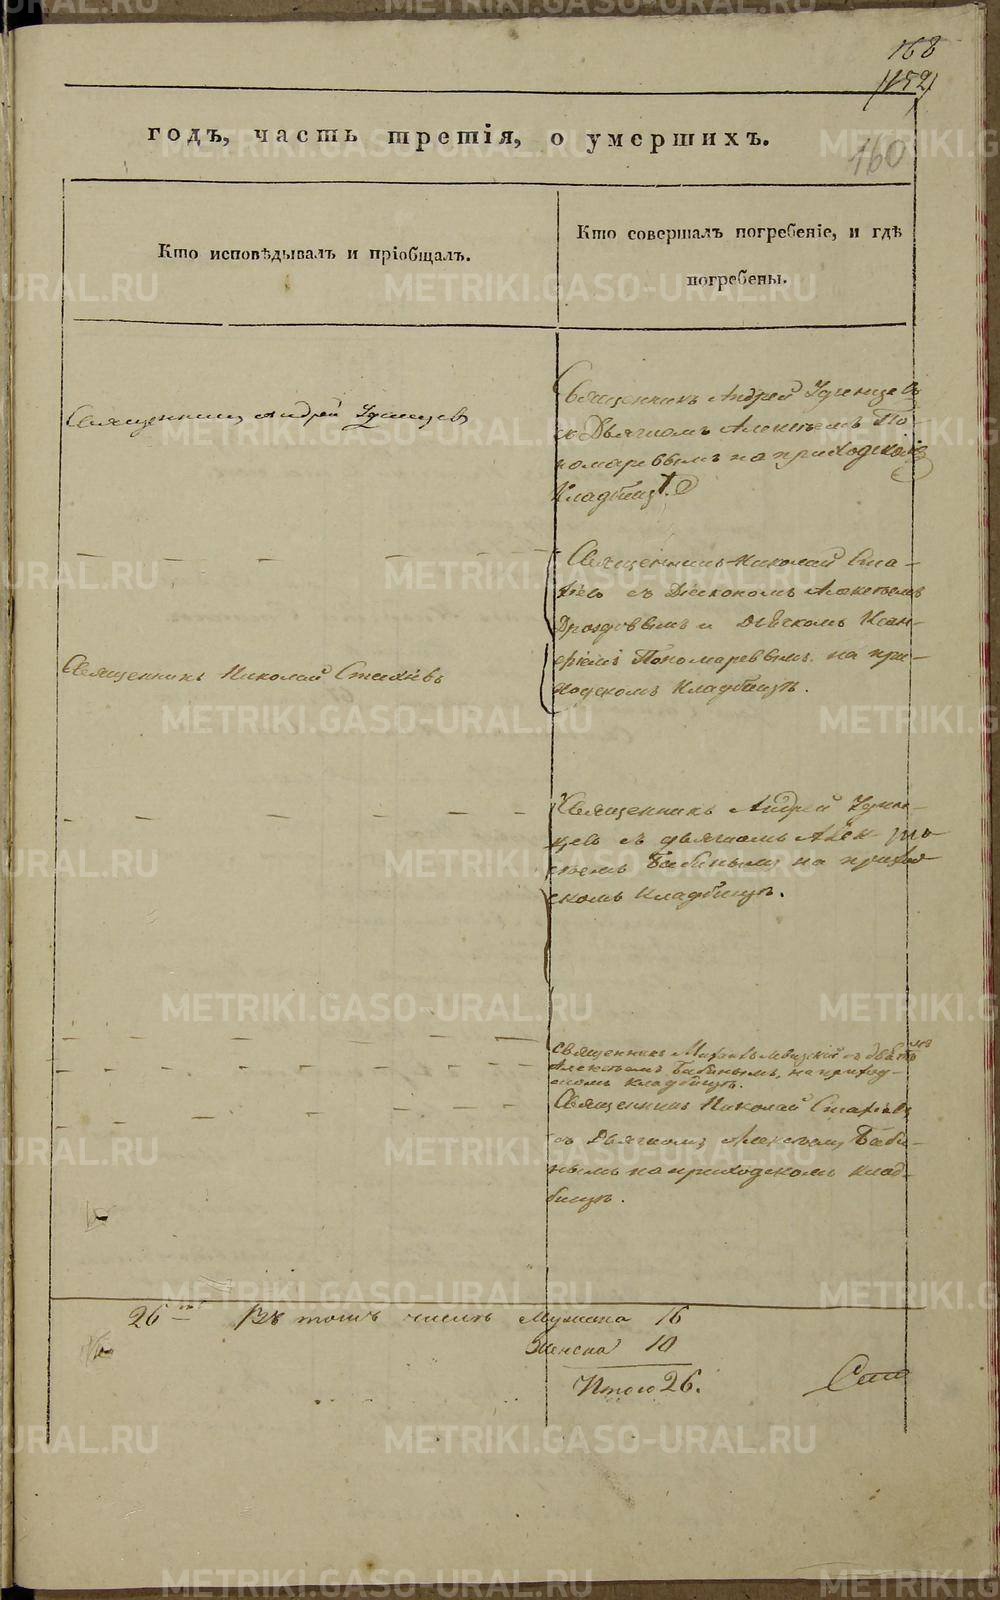 168
(152)
годъ, часть третія, о умершихъ.
160
Кто исповѣдывалъ и пріобщалъ.
Кто совершалъ погребеніе, и гдѣ
погребены.
Священникъ Андрей Удинцевъ
Священникъ Андрей Удинцевъ
съ Дьячкомъ Алексѣемъ По-
номаревымъ на приходскомъ
Кладбищѣ.
Священникъ Николай Ста-
хіевъ съ Діакономъ Алексѣемъ
Дроздовымъ и Дьячкомъ
Пономаревымъ на при-
ходскомъ Кладбищѣ.
Священникъ Николай Стахіевъ
Священникъ Андрей Удин-
цевъ съ дьячкомъ Алек-
сѣемъ Бабинымъ на приход-
скомъ Кладбищѣ.
Священникъ съ
Алексѣемъ Бабинымъ, на приход-
скомъ кладбищѣ.
Священникъ Николай Стахіевъ
съ Дьячкомъ Алексѣемъ Баби-
нымъ на приходскомъ клад-
бищѣ.
26 Въ томъ числѣ Мужеска 16
Женска 10
Итого 26.
METRIKI.GASO-URAL.RU